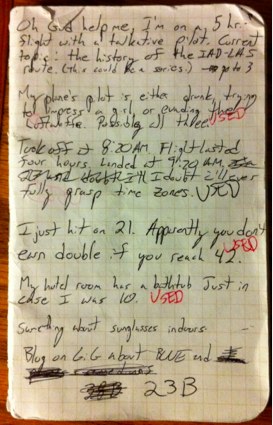 Oh God help me, I'm on a 5 hr.
flight with a talkative pilot. Current
topic: the history of the IAD-LAS
route. (this could be a series.) up to 3
My plane's pilot is either drunk, trying
to impress a girl or evading the
Luftwaffe. Possibly all three. USED
Took off at 8:20AM. Flight lasted
four hours. Landed at 9:20 AM.
I doubt I'll ever
fully grasp time zones. USED
I just hit on 21. Apparently you don't
earn double if you reach 42. USED
My hotel room has a bathtub Just in
case I was 10. USED
Something about sunglasses indoors
Blog on G.G about BLUE and
23B